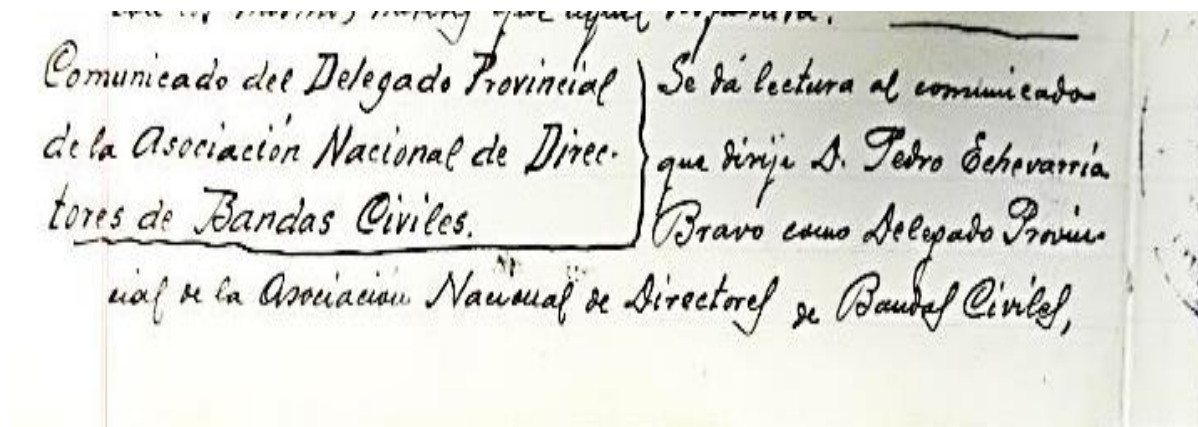 que aquel
Comunicado del Delegado Provincial
de la Asociación Nacional de Direc-
tores de Bandas Civiles.
Se dá lectura al comunicado
que dirije D. Pedro Echevarría
Bravo como Delegado Provin-
cial de la Asociación Nacional de Directores de Bandas Civiles,